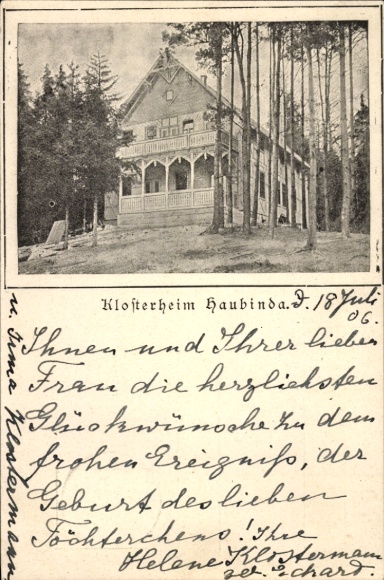 Klosterheim Haubinda. d. 18 Juli
06.
Ihnen und Ihrer lieben
Frau die herzlichsten
Glückwünsche zu dem
frohen Ereigniß, der
Geburt des lieben
Töchterchens! Ihre
Helene Klostermann
u. Irma Klostermann